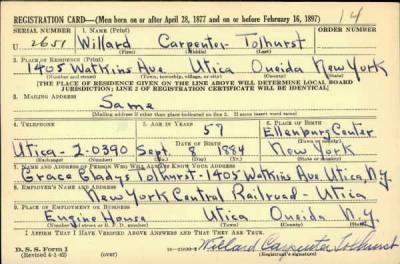 REGISTRATION CARD—(Men born on or after April 28, 1877 and on or before February 16, 1897)
14
SERIAL NUMBER 1. NAME (Print) ORDER NUMBER
U 2651 Willard Carpenter Tolhurst
(First) (Middle) (Last)
2. PLACE OF RESIDENCE (Print)
1405 Watkins Ave Utica Oneida New York
(Number and street) (Town, township, village, or city) (County) (State)
[THE PLACE OF RESIDENCE GIVEN ON THE LINE ABOVE WILL DETERMINE LOCAL BOARD
JURISDICTION; LINE 2 OF REGISTRATION CERTIFICATE WILL BE IDENTICAL]
3. MAILING ADDRESS
Same
[Mailing address if other than place indicated on line 2. If same insert word same]
4. TELEPHONE 5. AGE IN YEARS 6. PLACE OF BIRTH
57 Ellenburg Center
DATE OF BIRTH (Town or county)
Utica - 2-0390 Sept. 8 1884 New York
(Exchange) (Number) (Mo.) (Day) (Yr.) (State or country)
7. NAME AND ADDRESS OF PERSON WHO WILL ALWAYS KNOW YOUR ADDRESS
Grace Gladys Tolhurst - 1405 Watkins Ave Utica, N.Y.
8. EMPLOYER'S NAME AND ADDRESS
New York Central Railroad - Utica
9. PLACE OF EMPLOYMENT OR BUSINESS
Engine House Utica Oneida N.Y.
(Number and street or R. F. D. number) (Town) (County) (State)
I AFFIRM THAT I HAVE VERIFIED ABOVE ANSWERS AND THAT THEY ARE TRUE.
D. S. S. Form 1
(Revised 4-1-42) (over) Willard Carpenter Tolhurst
(Registrant's signature)